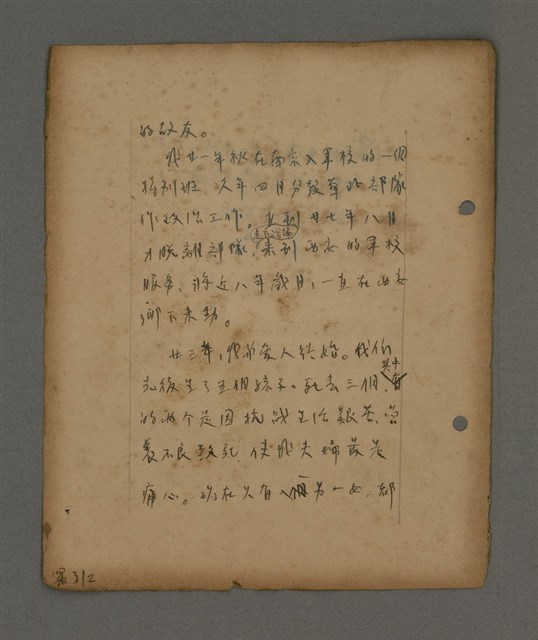 的故友。
我廿一年秋在南京入軍校的一個
特別班，次年四月分發華北部隊
作政治工作。直到廿七年八月
才脫離部隊，來到西安的軍校
服务，將近八年歲月，一直在西安
鄉下未動。
廿三年，我和爱人结婚。我们
先後生了五個孩子。死去三個，其中有
的两个是因抗战生活艰苦，营
养不良致死，使我夫婦最是
痛心。现在只有一男一女，都